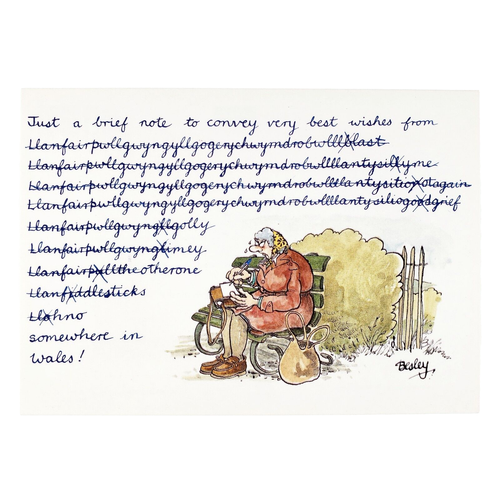 Just a brief note to convey very best wishes from
Llanfairpwllgwyngyllgogerychwymdrobwlllblast
Llanfairpwllgwyngyllgogerychwymdrobwlllantysillyme
Llanfairpwllgwyngyllgogerychwymdrobwlllantysitionotagain
Llanfairpwllgwyngyllgogerychwymdrobwlllantysiliogodsgrief
Llanfairpwllgwyngllgolly
Llanfairpwllgwyngblimey
Llanfairpulltheotherone
Llanfiddlesticks
Llohno
somewhere in
Wales!
Besley